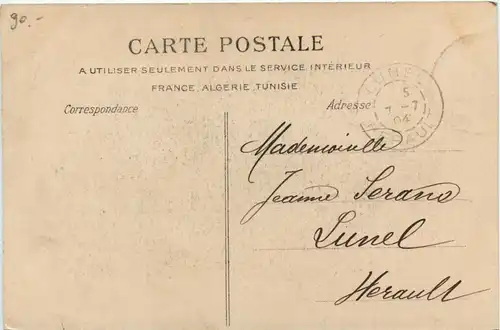 90.-
CARTE POSTALE
A UTILISER SEULEMENT DANS LE SERVICE INTÉRIEUR
FRANCE, ALGERIE, TUNISIE
Correspondance
Adresse
LUNEL
5
7-7
04
HERAULT
Mademoiselle
Jeanne Serano
Lunel
Herault